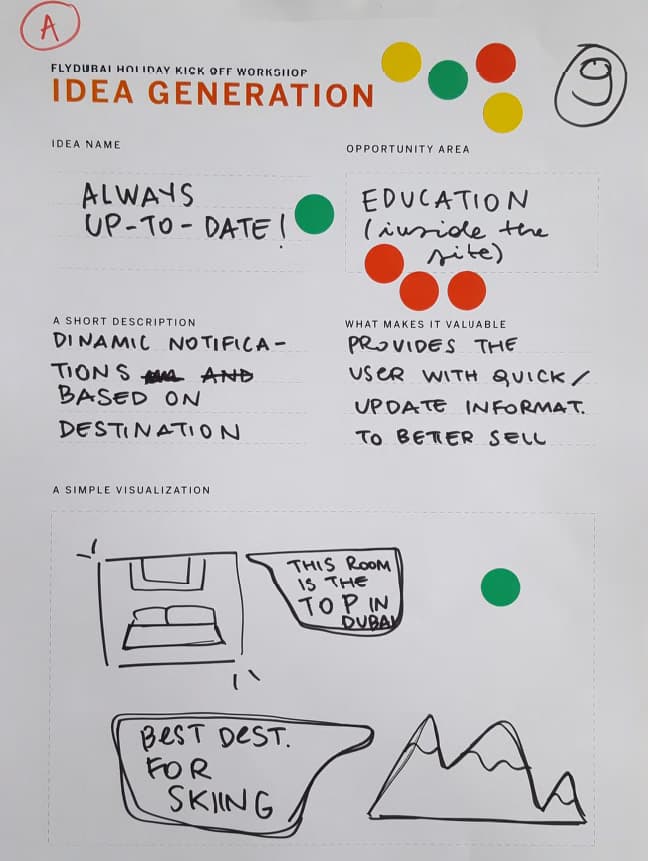 A
FLYDUBAI HOLIDAY KICK OFF WORKSHOP
IDEA GENERATION
9
IDEA NAME
ALWAYS
UP-TO-DATE!
OPPORTUNITY AREA
EDUCATION
(inside the
site)
A SHORT DESCRIPTION
DINAMIC NOTIFICA-
TIONS AND
BASED ON
DESTINATION
WHAT MAKES IT VALUABLE
PROVIDES THE
USER WITH QUICK/
UPDATE INFORMAT.
TO BETTER SELL
A SIMPLE VISUALIZATION
THIS ROOM
IS THE
TOP IN
DUBAI
BEST DEST.
FOR
SKIING